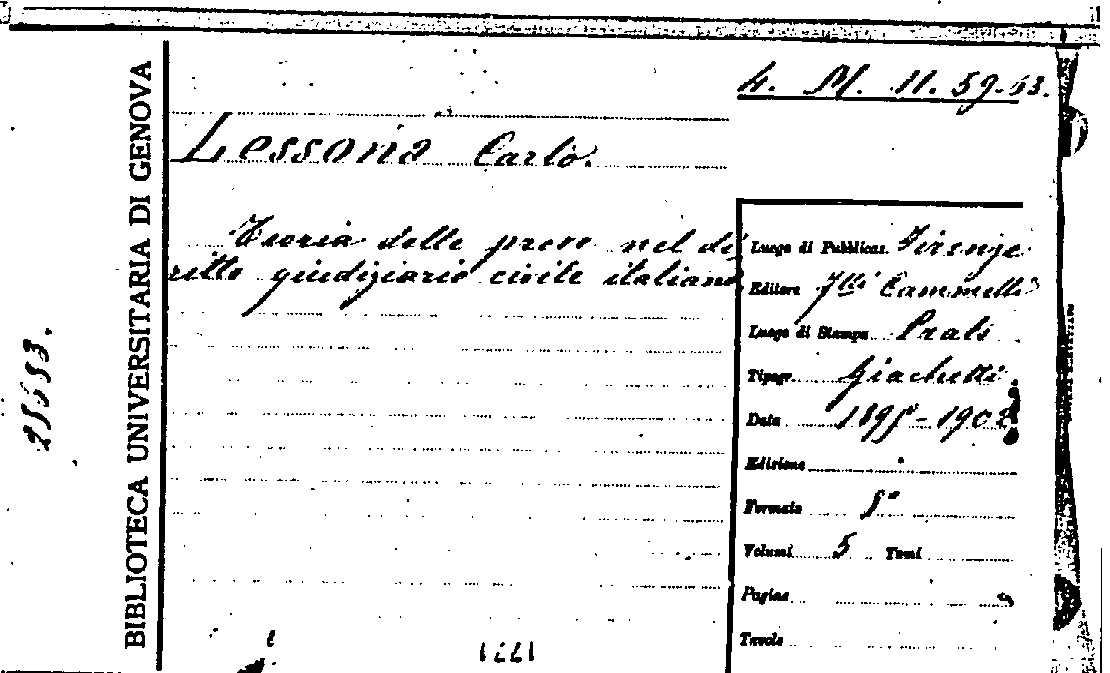 4. M. 11. 59-63.
BIBLIOTECA UNIVERSITARIA DI GENOVA
Lessona Carlo.
Teoria delle prove nel di
ritto giudiziario civile italiano
Luogo di Pubblicaz. Firenze
Editore F.lli Cammelli
Luogo di Stampa Prato
Tipogr. Giachetti
Data 1895-1902
Edizione
Formato 8°
Volumi 5 Tomi
Pagine
Tavole